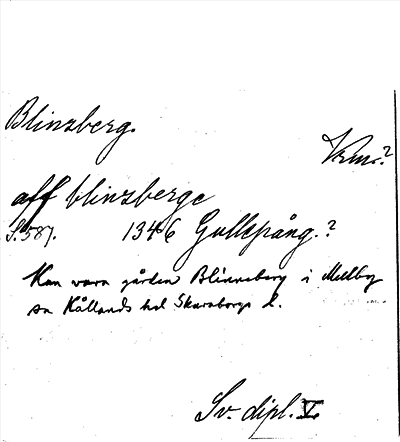 Blinzberg.
Vrml.?
aff blinzberge
S. 587. 1346 Gullspång.?
Kan vara gården Blinneberg i Mellby
sn Kållands hd Skaraborgs l.
Sv. dipl. V.